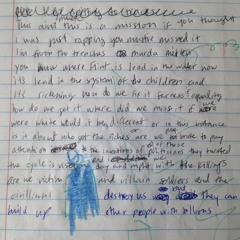 This aint this is a mission if you thought
I was just rapping you musta missed it
I'm from the trenches murda mitten
you know where Flint is lead in the water now
its lead in the system of the children and
its sickening how do we fix it fairness equality
how do we get it where did we miss it if we
were white would it be different or in this instance
is it about who got the riches or are we to pay
attention to the intentions of politicians they twisted
the cycle is vicious day and night with the killings
are we victims and villains soldiers and the
civillians destroy us they can
build up other people with billions